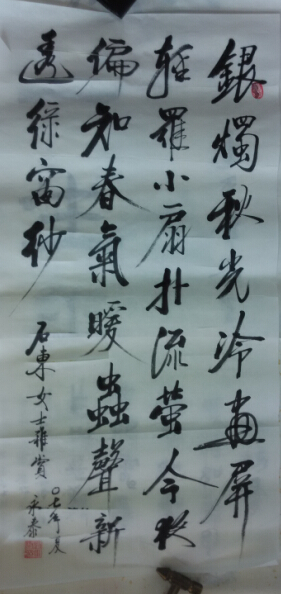 銀燭秋光冷畫屏
輕羅小扇扑流螢今夜
偏知春氣暖蟲聲新
透綠窗紗
石東女士雅賞
〇七年夏
永泰